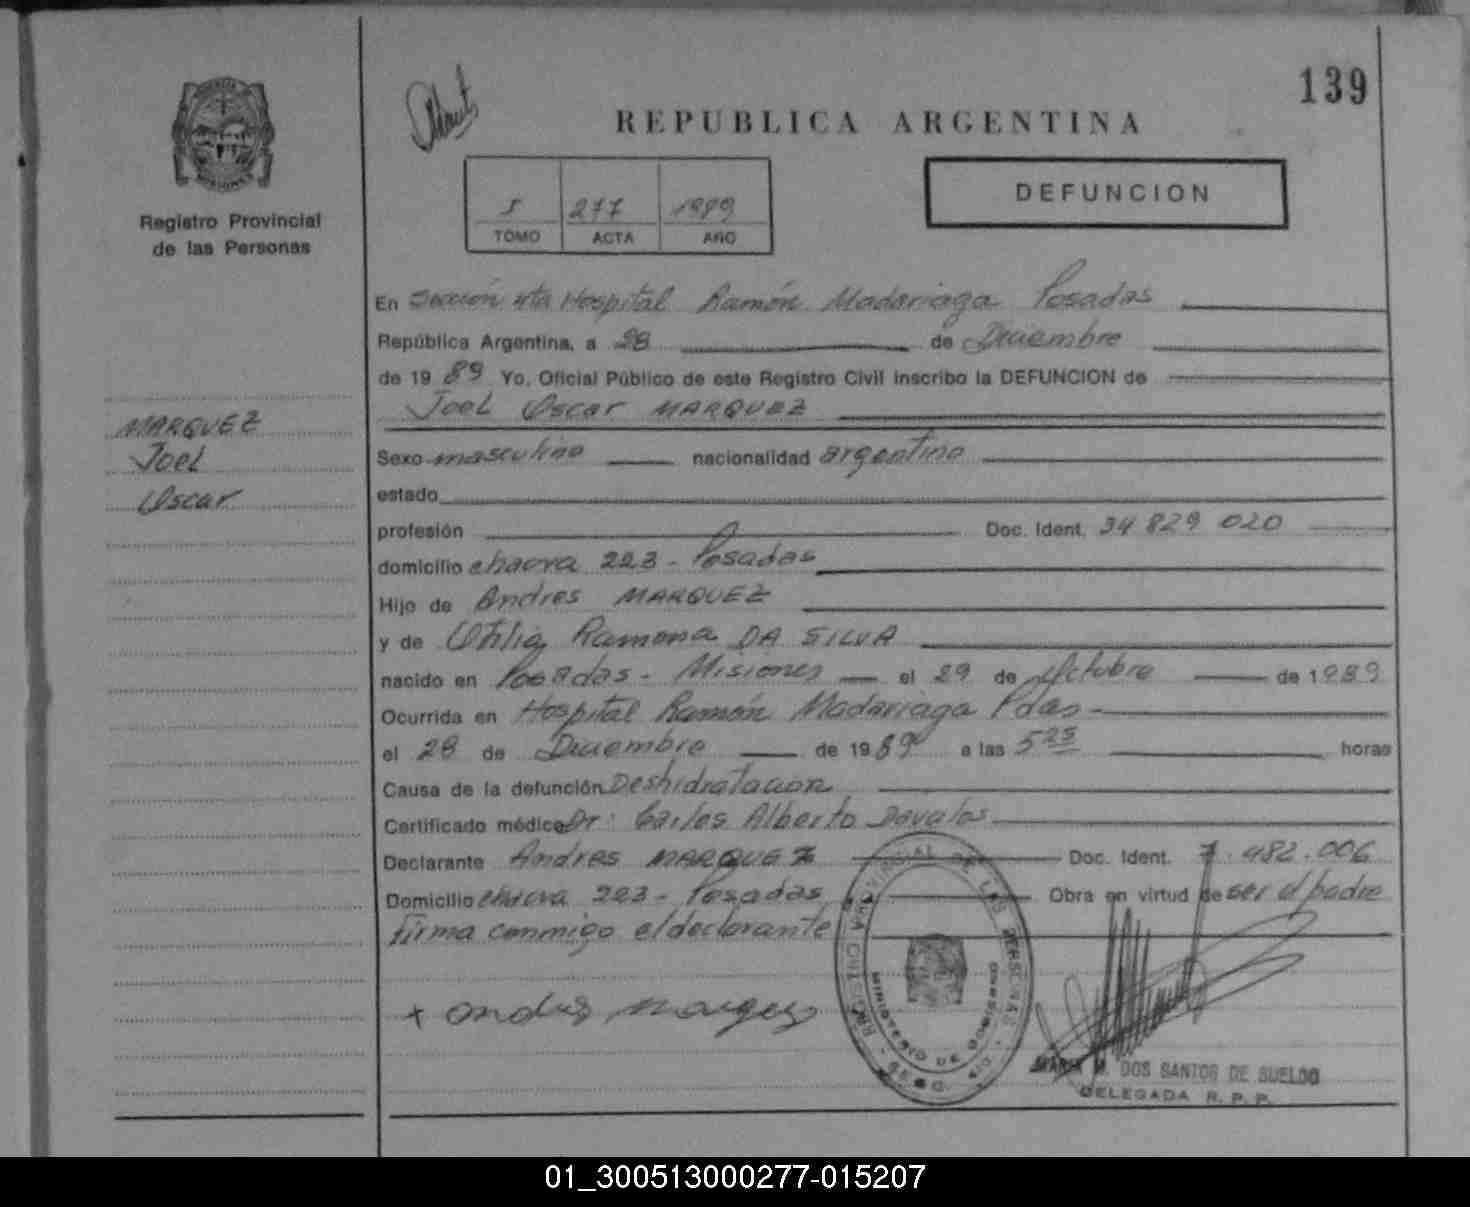 139
REPUBLICA ARGENTINA
DEFUNCION
I 277 1989
TOMO ACTA AÑO
Registro Provincial
de las Personas
MARQUEZ
Joel
Oscar
En Sección 4ta Hospital Ramón Madariaga Posadas
República Argentina, a 28 de Diciembre
de 1989 Yo, Oficial Público de este Registro Civil inscribo la DEFUNCION de
Joel Oscar MARQUEZ
Sexo masculino nacionalidad argentina
estado
profesión Doc. Ident. 34 829 020
domicilio chacra 223 - Posadas
Hijo de Andres MARQUEZ
y de Otilia Ramona DA SILVA
nacido en Posadas - Misiones el 29 de Octubre de 1989
Ocurrida en Hospital Ramón Madariaga Pdas -
el 28 de Diciembre de 1989 a las 5 25 horas
Causa de la defunción Deshidratación
Certificado médico Dr. Carlos Alberto Davalos
Declarante Andres MARQUEZ Doc. Ident. 7.482.006
Domicilio chacra 223 - Posadas Obra en virtud de ser el padre
Firma conmigo el declarante
REGISTRO PROVINCIAL DE LAS PERSONAS
MINISTERIO DE GOBIERNO
MARIA M. DOS SANTOS DE SUELDO
DELEGADA R. P. P.
01_300513000277-015207